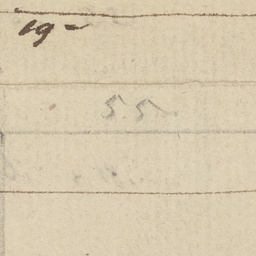 19 –
55